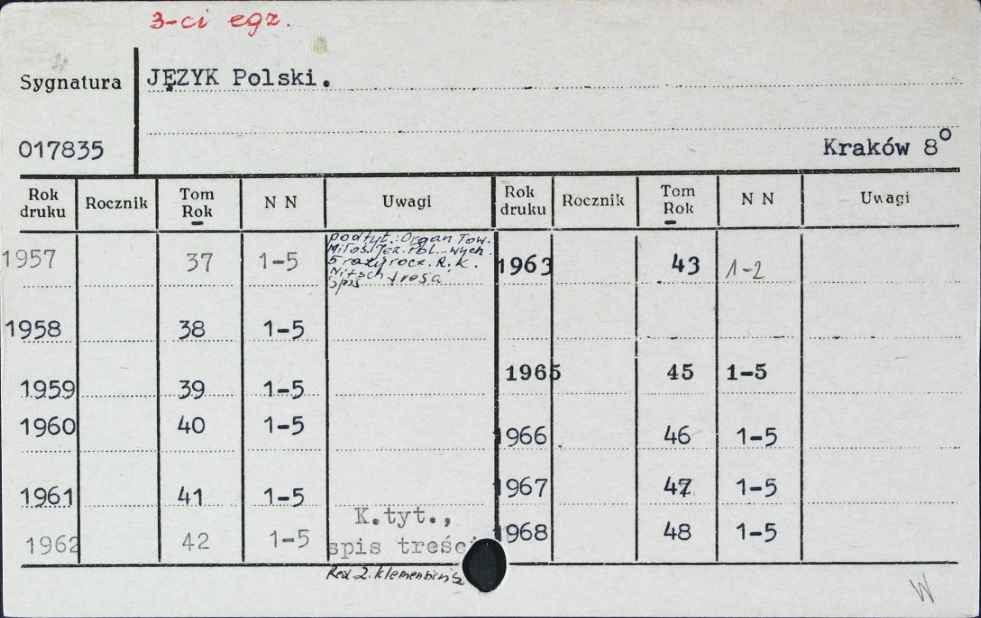 3-ci egz.
Sygnatura JĘZYK Polski.
017835 Kraków 8°
Rok druku Rocznik Tom Rok N N Uwagi Rok druku Rocznik Tom Rok N N Uwagi
1957 37 1-5 podtyt.: Organ Tow.
Miłoś. Jęz. Pol. wych.
5 razy rocz. R. K.
Nitsch
spis treśc
1963 43 1-2
1958 38 1-5
1965 45 1-5
1959 39 1-5
1960 40 1-5
1966 46 1-5
1961 41 1-5
1967 47 1-5
1962 42 1-5 K.tyt.,
spis treści
1968 48 1-5
Red. Z. Klemensiewicz
W